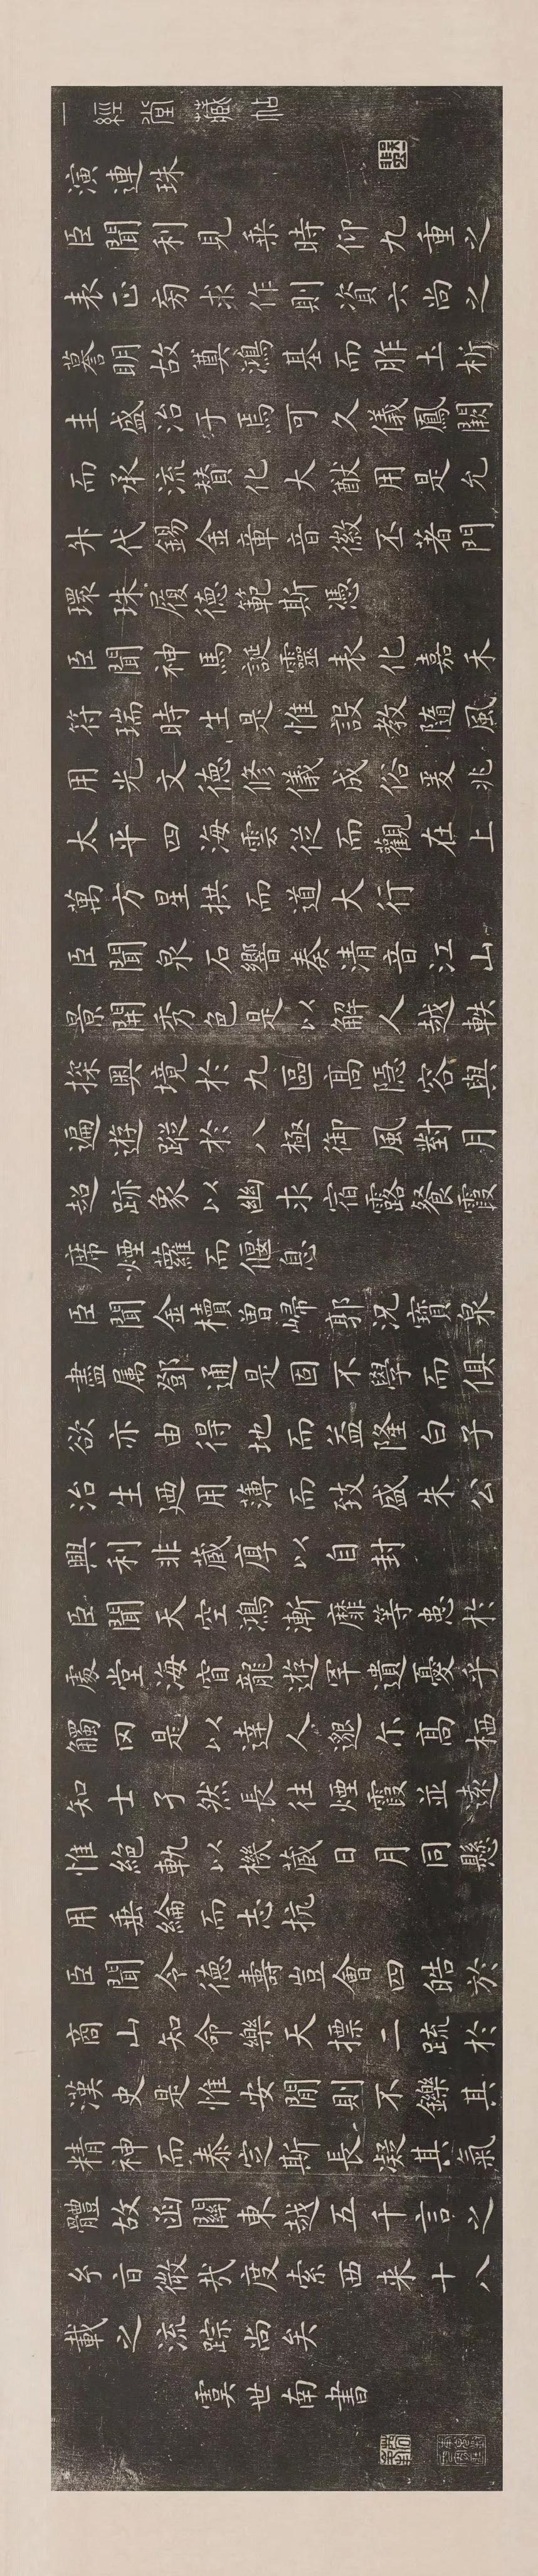 一經堂藏帖
演連珠
臣聞利見乘時仰九重之
表正旁求作則資六尚之
謩明故奠鴻基而胙土析
圭盛治于焉可久儀鳳闕
而承流贊化大猷用是允
升代錫金章音徽丕著門
環珠履德範斯憑
臣聞神馬誕靈表化嘉禾
符瑞時生是惟設教隨風
用光文德修儀成俗爰兆
太平四海雲從而觀在上
萬方星拱而道大行
臣聞泉石響奏清音江山
景開秀色是以解人越軼
探奧境於九區高隱容與
遍遊蹤於八極御風對月
超跡象以幽求宿露餐霞
席煙蘿而偃息
臣聞金櫝曾歸郭況寶泉
盡属鄧通是固不學而俱
欲亦由得地而益隆白子
治生迺用薄而致盛朱公
興利非蔵厚以自封
臣聞天空鴻漸靡等患於
處堂海窅龍遊罕遺憂乎
觸罔是以達人邈尒高栖
知士孑然長往煙霞並遠
惟絕軌以機蔵日月同懸
用垂綸而志抗
臣聞令德壽豈會四皓於
商山知命樂天摽二疏於
漢史是惟安閒則不鑠其
精神而泰定斯長凝其氣
體故函關東越五千言之
音徽哉度索西来十八
載之流踪尚矣
虞世南書